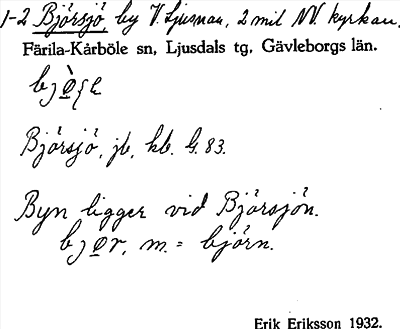 1-2 Björsjö, by V. Ljusnan, 2 mil NV. kyrkan.
Färila-Kårböle sn, Ljusdals tg, Gävleborgs län.
Björsjö, jb, kb. G. 83.
Byn ligger vid Björsjön.
bjør, m. = björn.
Erik Eriksson 1932.